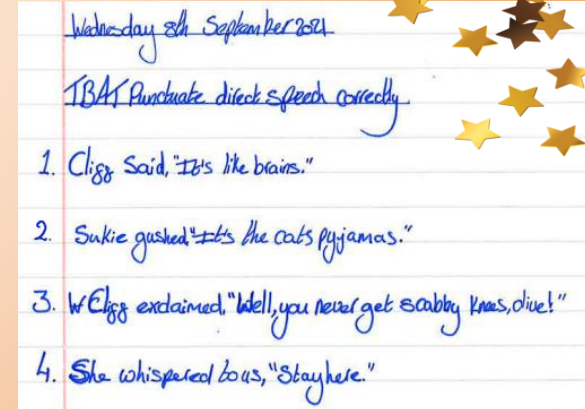 Wednesday 8th September 2021
TBAT Punctuate direct speech correctly
1. Cligg Said, "It's like brains."
2. Sukie gushed "It's the cats pyjamas."
3. Cligg exclaimed, "Well, you never get scabby knees, dive!"
4. She whispered to us, "Stay here."